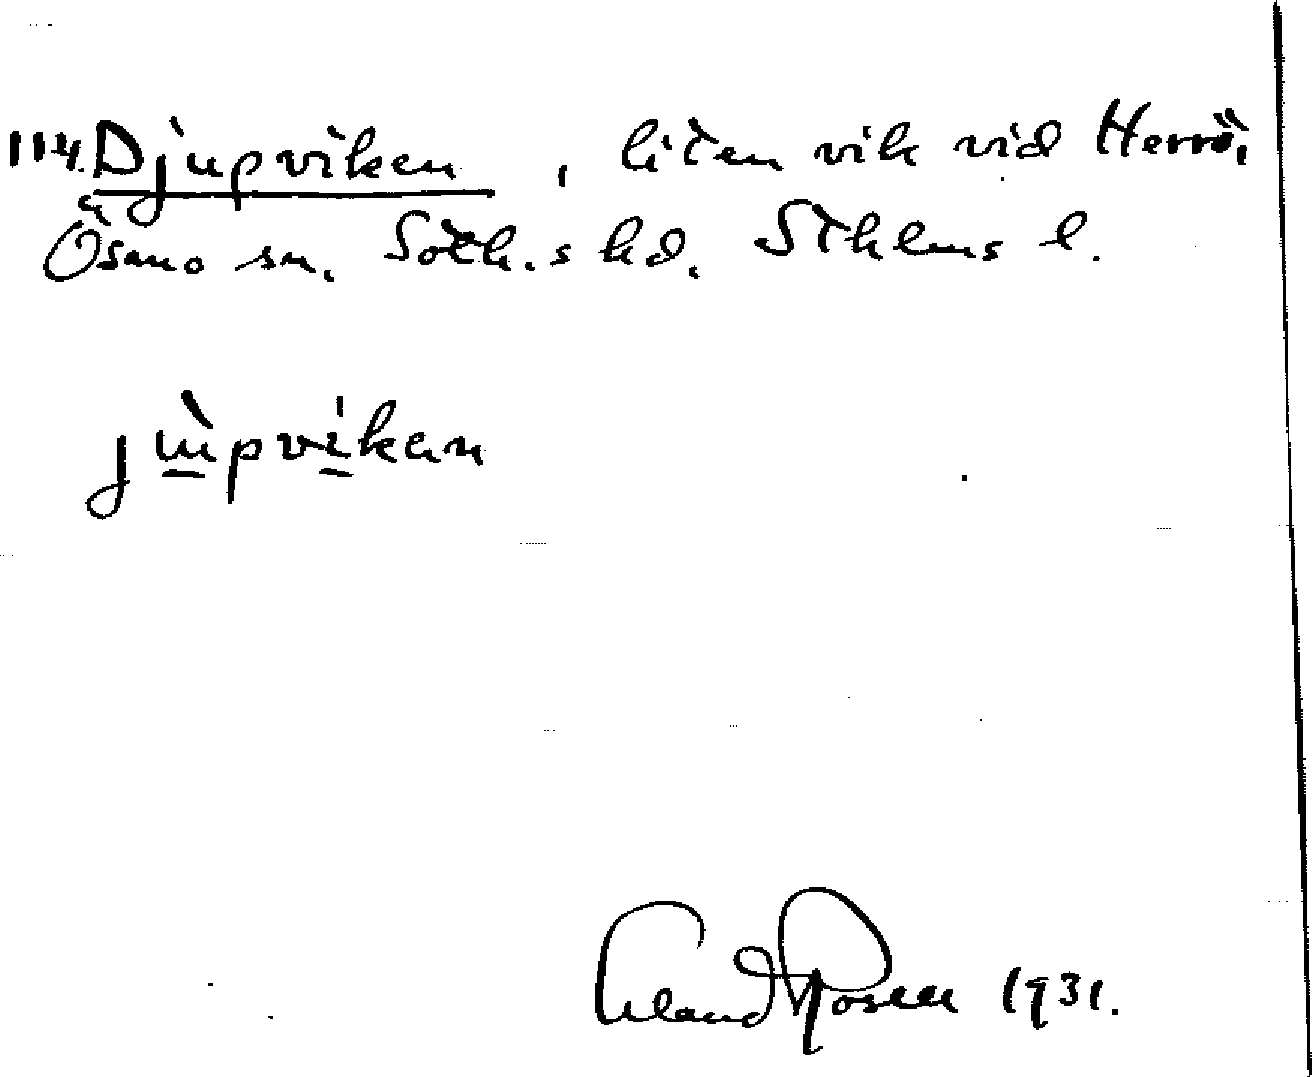 114. Djupviken, liten vik vid Herrö,
Ösmo sn. Soth.s hd. Sthlms l.
jùpvikan
Erland Rosell 1931.